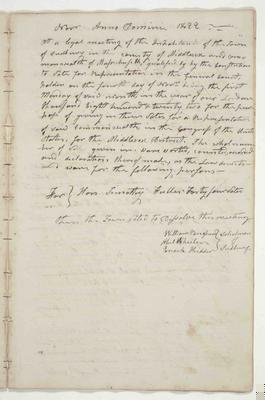 Novr Anno Domini 1822
At a legal meeting of the Inhabitants of the Town
of Sudbury in the County of Middlesex and Com-
monwealth of Massachusetts qualified by the Constitution
to Vote for Representatives in the General Court,
holden on the fourth day of Novr being the first
Monday of said month in the year of our Lord one
Thousand eight hundred & twenty two for the pur-
pose of giving in their Votes for a Representative
of said Commonwealth in the Congress of the United
States, for the Middlesex District. The whol num-
ber of Votes given in were sorted, counted, recorded
and declaration thereof made, as the Law directs
were for the following persons
For Hon. Timothy Fuller Forty four Votes
then the Town Voted to Dissolve this meeting
William Selectmen
Abel Wheeler of
Enoch Kidder Sudbury